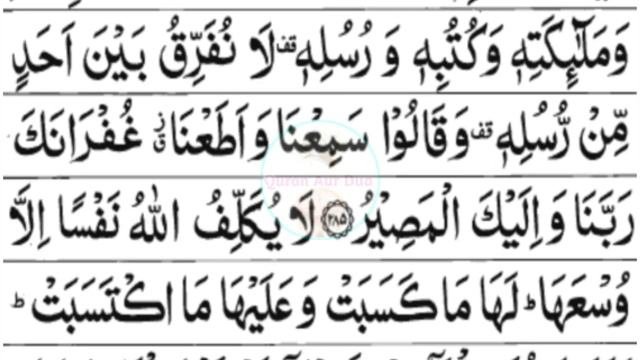 وَمَلٰٓئِكَتِهٖ وَكُتُبِهٖ وَ رُسُلِهٖ قف لَا نُفَرِّقُ بَيْنَ اَحَدٍ
مِّنْ رُّسُلِهٖ قف وَقَالُوْا سَمِعْنَا وَ اَطَعْنَا ز ق غُفْرَانَكَ
رَبَّنَا وَ اِلَيْكَ الْمَصِيْرُ ﴿۲۸۵﴾ لَا يُكَلِّفُ اللّٰهُ نَفْسًا اِلَّا
وُسْعَهَا ؕ لَهَا مَا كَسَبَتْ وَ عَلَيْهَا مَا اكْتَسَبَتْ ؕ
Quran Aur Dua